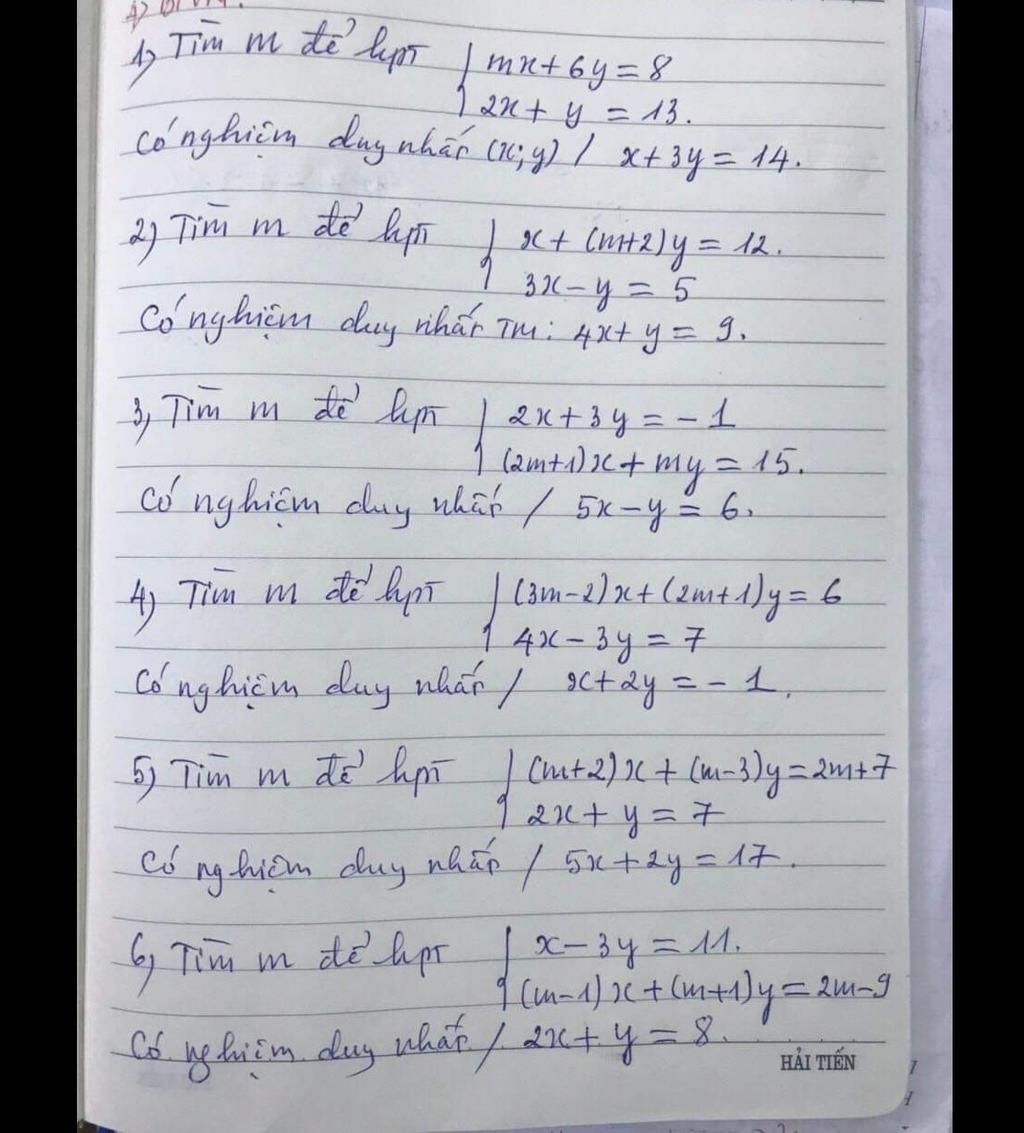 1) Tìm m để hpt { mx + 6y = 8
2x + y = 13.
Có nghiệm duy nhất (x; y) / x + 3y = 14.
2) Tìm m để hpt { x + (m+2)y = 12.
3x - y = 5
Có nghiệm duy nhất TM: 4x + y = 9.
3) Tìm m để hpt { 2x + 3y = -1
(2m+1)x + my = 15.
Có nghiệm duy nhất / 5x - y = 6.
4) Tìm m để hpt { (3m-2)x + (2m+1)y = 6
4x - 3y = 7
Có nghiệm duy nhất / x + 2y = -1.
5) Tìm m để hpt { (m+2)x + (m-3)y = 2m+7
2x + y = 7
Có nghiệm duy nhất / 5x + 2y = 17.
6) Tìm m để hpt { x - 3y = 11.
(m-1)x + (m+1)y = 2m-9
Có nghiệm duy nhất / 2x + y = 8.
HẢI TIẾN